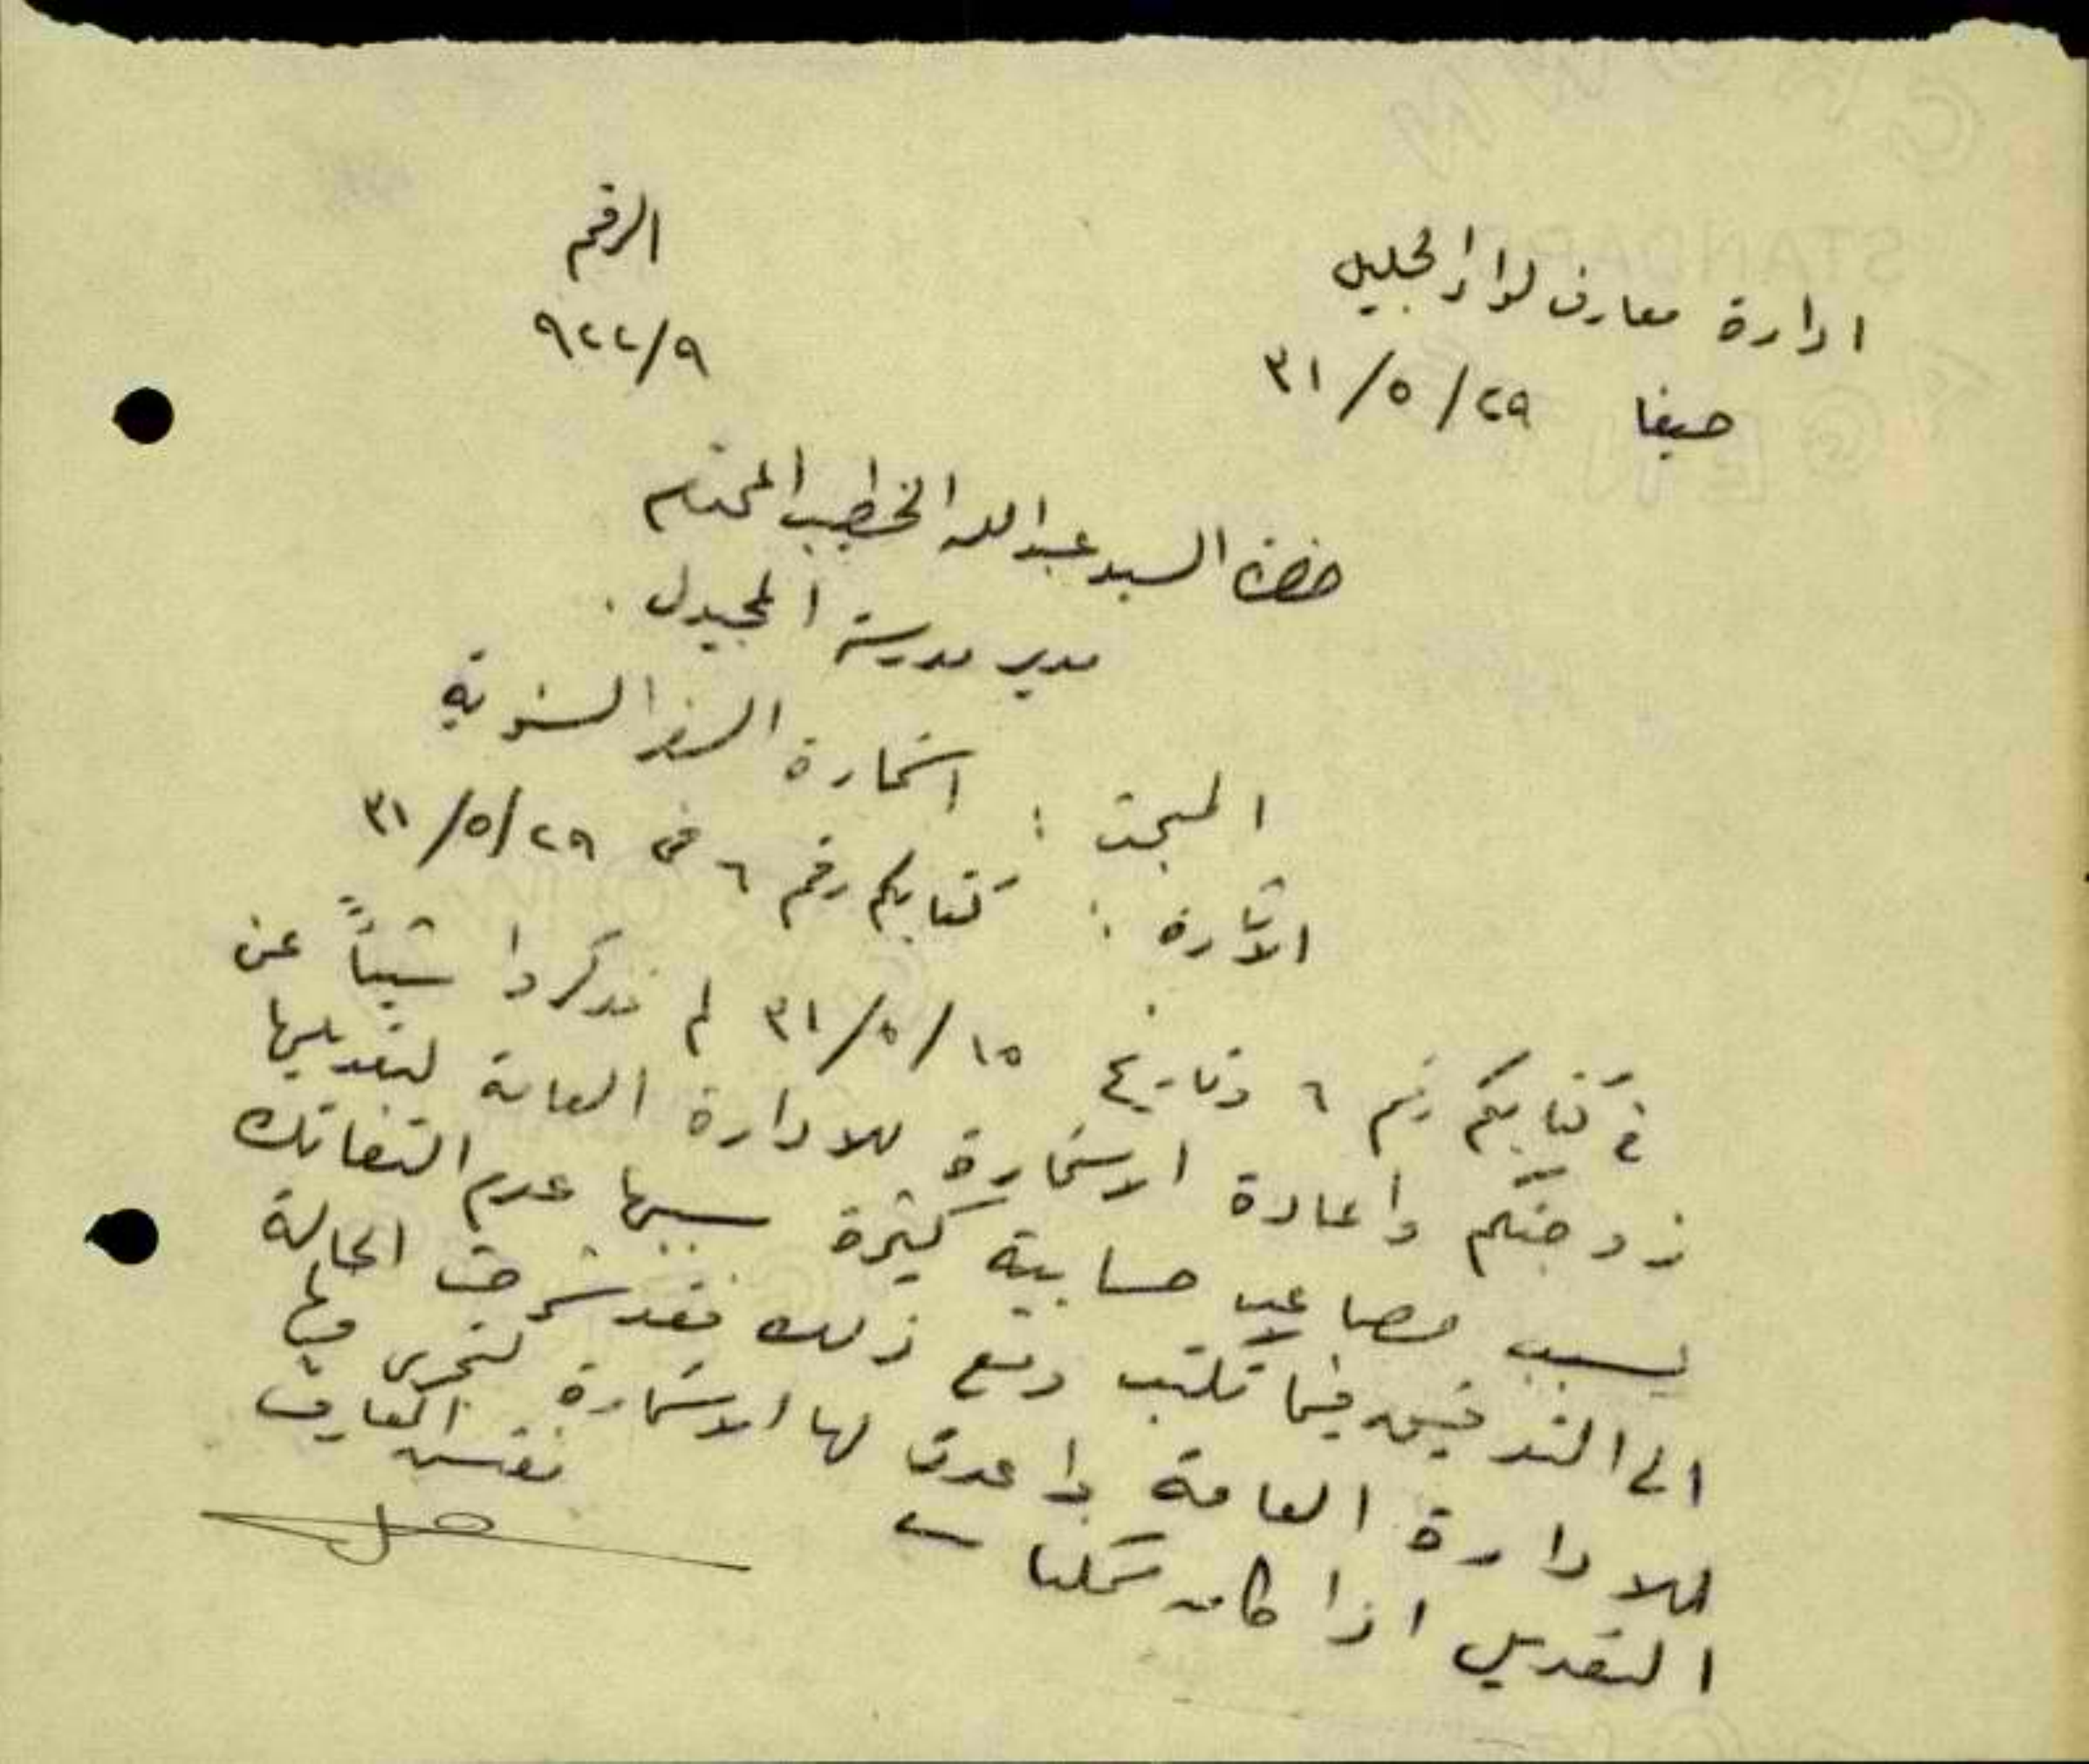 الرقم
ادارة معارف لواء الجليل
٩/٩٢٢
حيفا ٢٩/٥/٣١
حضرة السيد عبدالله الخطيب المحترم
مدير مدرسة المجيدل .
المبحث : استمارة السفر السنوية
الاشارة : كتابكم رقم ٦ في ٢٩/٥/٣١
في كتابكم رقم ٦ وتاريخ ١٥/٥/٣١ لم تذكروا شيئاً عن
زوجتكم واعادة الاستمارة للادارة العامة لتعديلها
يسبب مصاعب حسابية كثيرة سببها عدم التفاتك
الى التدقيق فيما تكتب ومع ذلك فقد شرحت الحالة
للادارة العامة واعدت لها الاستمارة لتجرى فيها
التعديل اذا كان ممكنا
مفتش المعارف